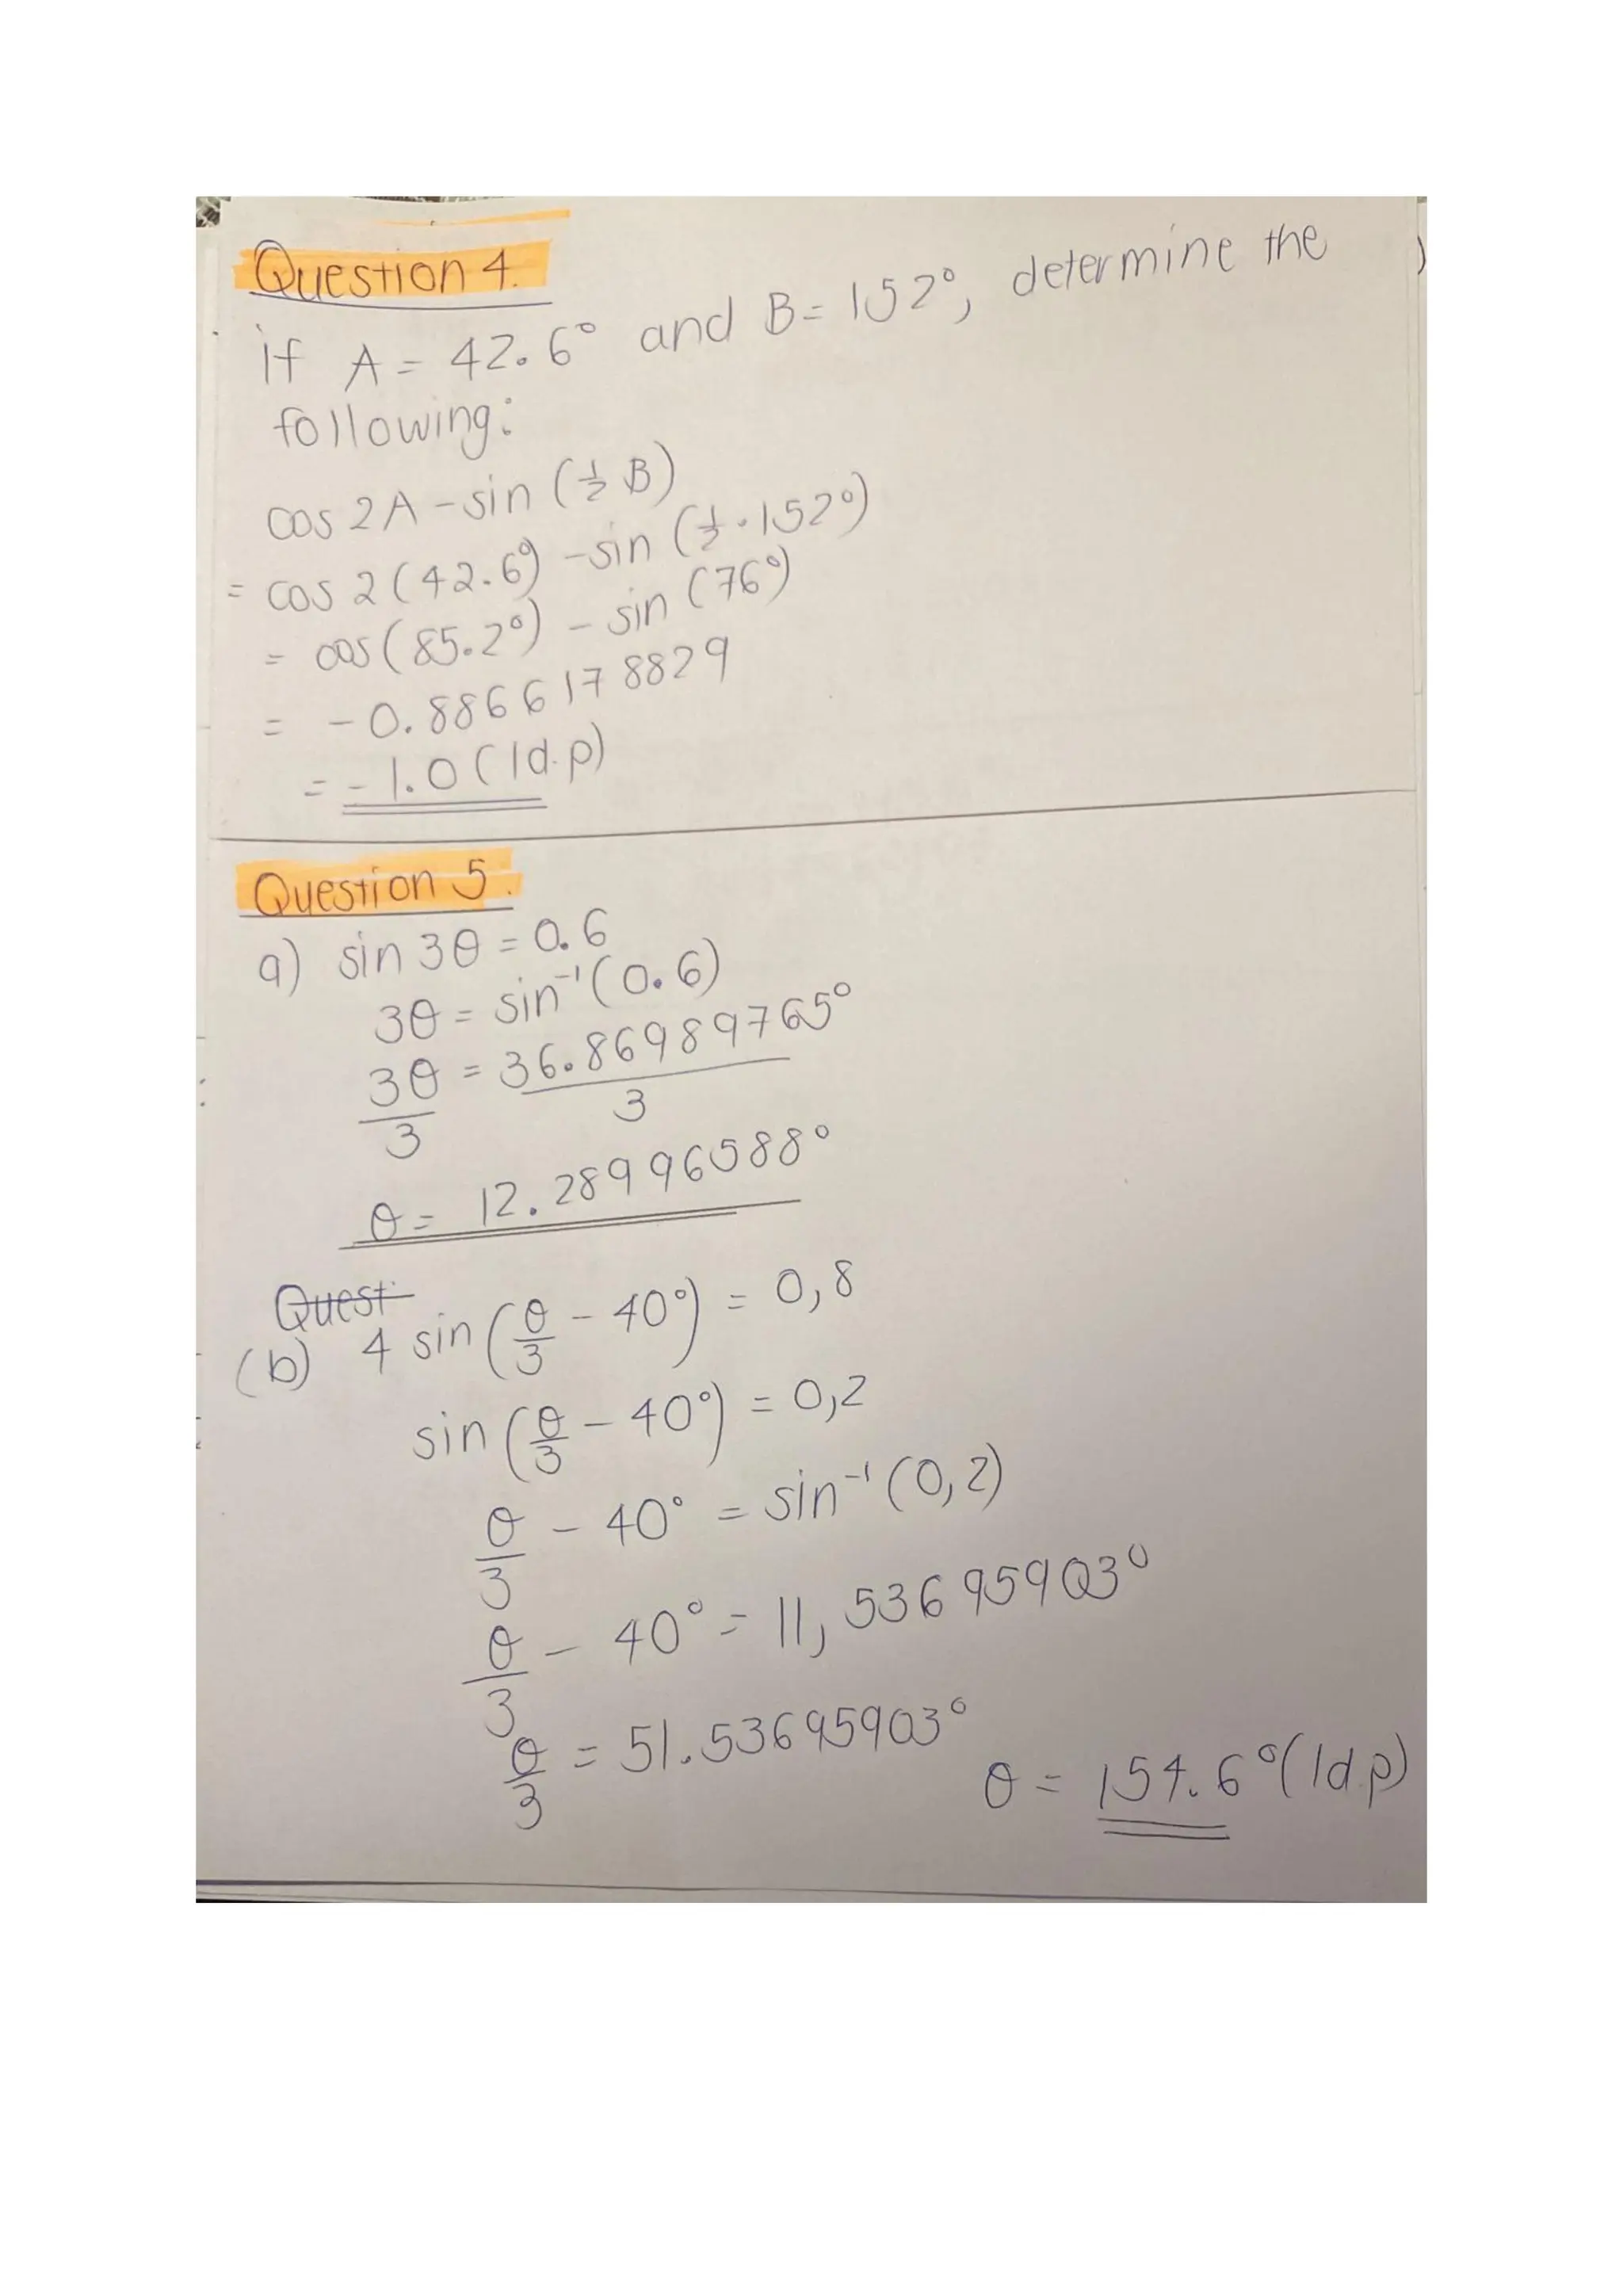 Question 4.
if A = 42.6° and B = 152°, determine the
following:
cos 2A - sin (½ B)
= cos 2 (42.6°) - sin (½ · 152°)
= cos (85.2°) - sin (76°)
= - 0.88661 78829
= - 1.0 (1d.p)
Question 5.
a) sin 3θ = 0.6
3θ = sin⁻¹ (0.6)
3θ/3 = 36.86989765°/3
θ = 12.28996588°
Quest
(b) 4 sin (θ/3 - 40°) = 0,8
sin (θ/3 - 40°) = 0,2
θ/3 - 40° = sin⁻¹ (0,2)
θ/3 - 40° = 11,53695903°
θ/3 = 51.53695903°
θ = 154.6° (1d.p)